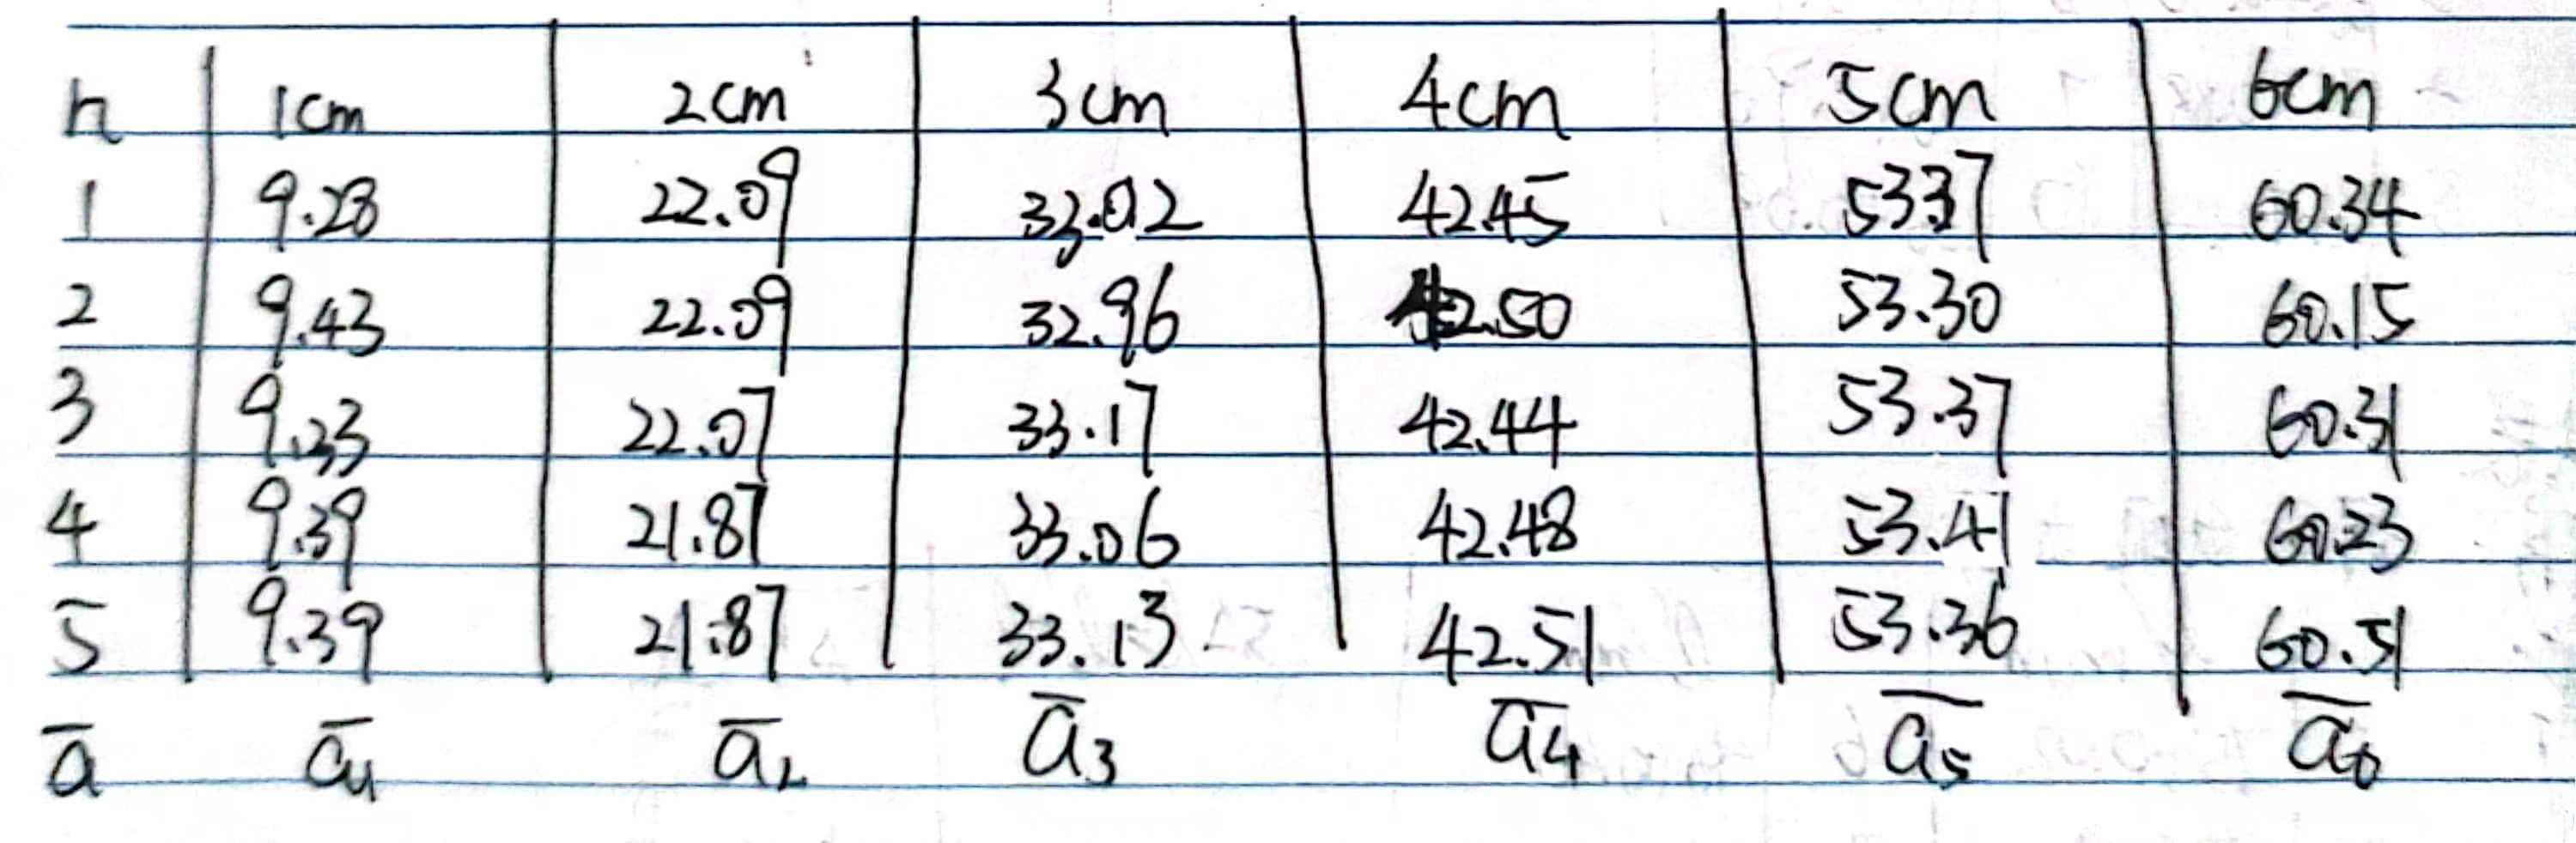 n 1cm 2cm 3cm 4cm 5cm 6cm
1 9.28 22.09 33.02 42.45 53.37 60.34
2 9.43 22.09 32.96 42.50 53.30 60.15
3 9.33 22.07 33.17 42.44 53.37 60.31
4 9.39 21.87 33.06 42.48 53.41 60.23
5 9.39 21.87 33.13 42.51 53.36 60.51
a̅ a̅₁ a̅₂ a̅₃ a̅₄ a̅₅ a̅₆